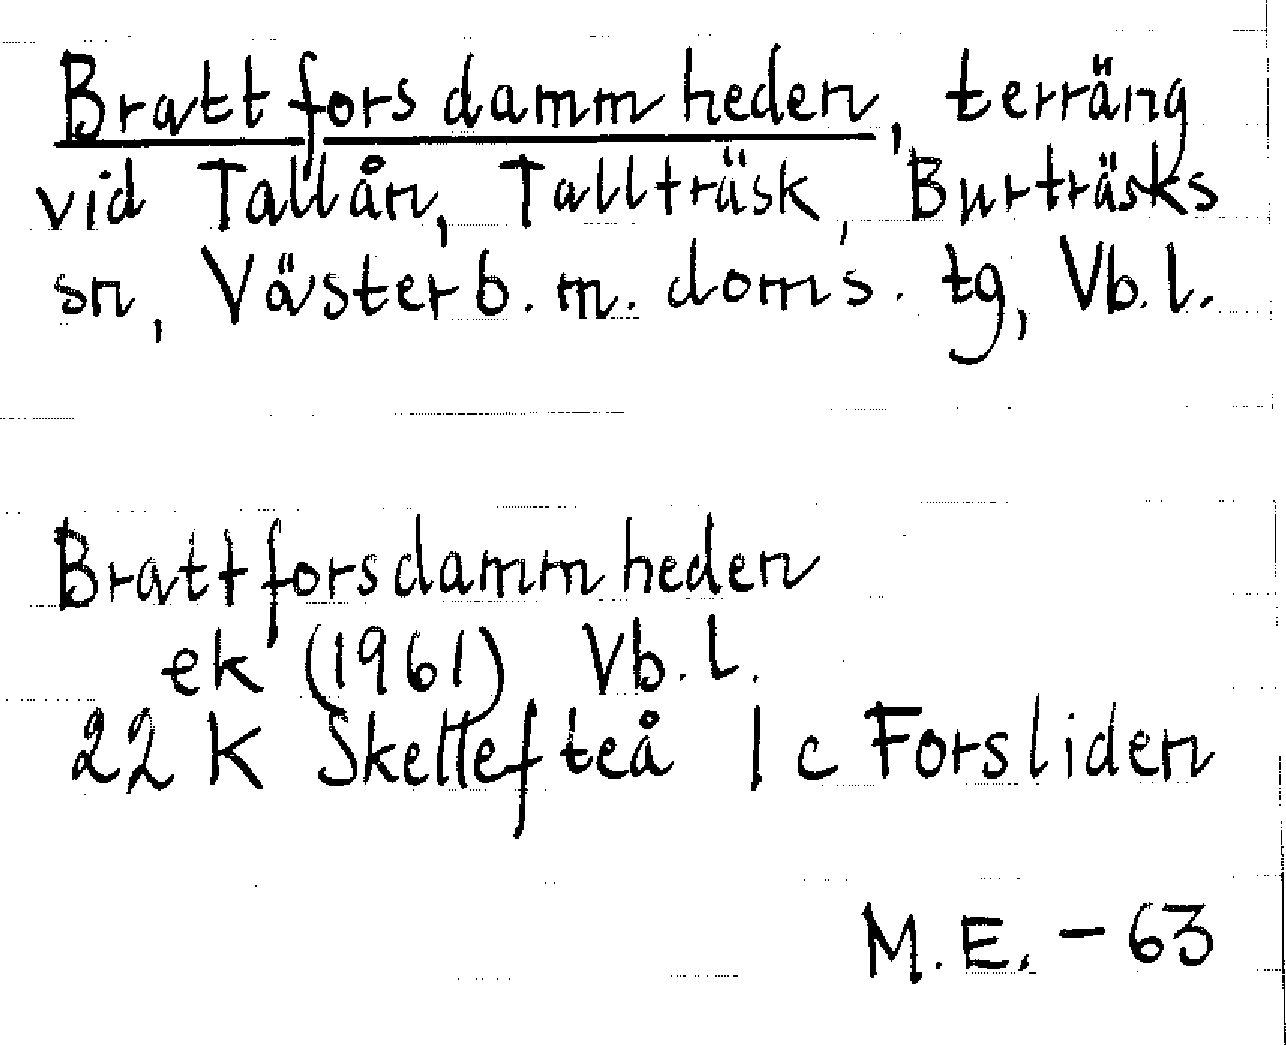 Brattforsdammheden, terräng
vid Tallån, Tallträsk, Burträsks
sn, Västerb. m. doms. tg, Vb. l.
Brattforsdammheden
ek (1961) Vb. l.
22 K Skellefteå 1 c Forsliden
M. E. - 63